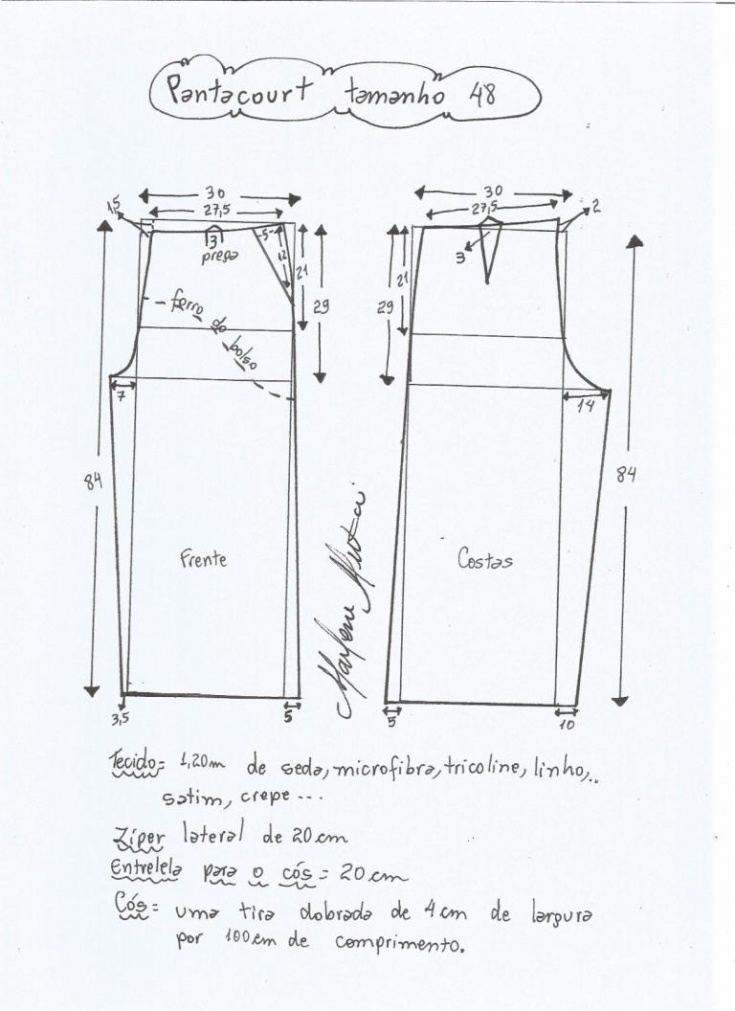 Pantacourt tamanho 48
30
27,5
1,5
3
prega
5
12
21
29
forro
do
bolso
7
84
Frente
3,5
5
30
27,5
2
3
21
29
14
84
Costas
5
10
Marlene Mukai
Tecido= 1,20m de seda, microfibra, tricoline, linho,..
satim, crepe ...
Zíper lateral de 20 cm
Entretela para o cós = 20 cm
Cós= uma tira dobrada de 4 cm de largura
por 100 cm de comprimento.